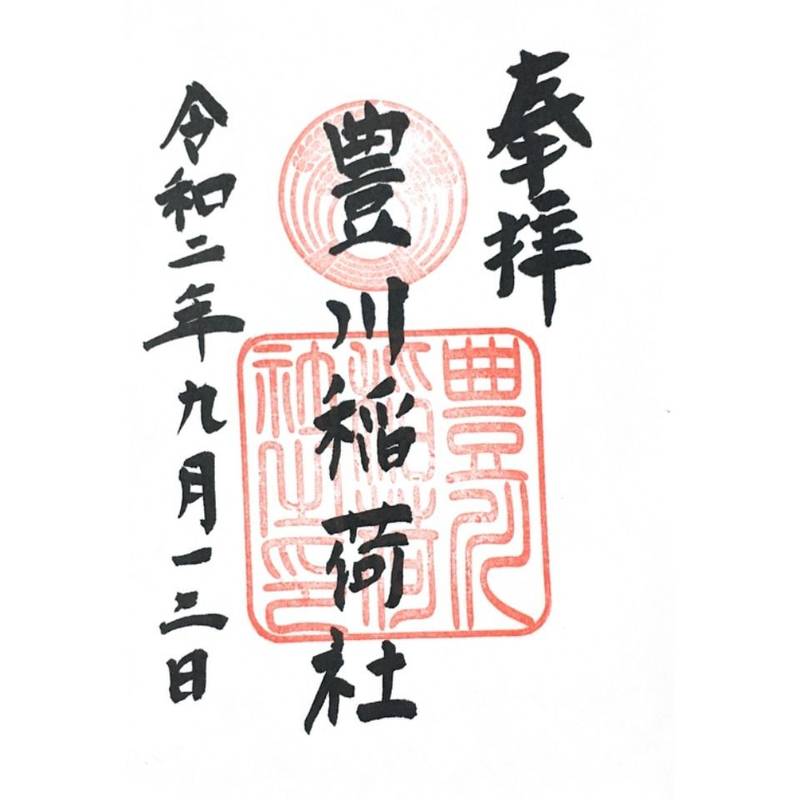 奉拝
豊川稲荷社
令和二年九月一三日
豊川
稲荷
社之印